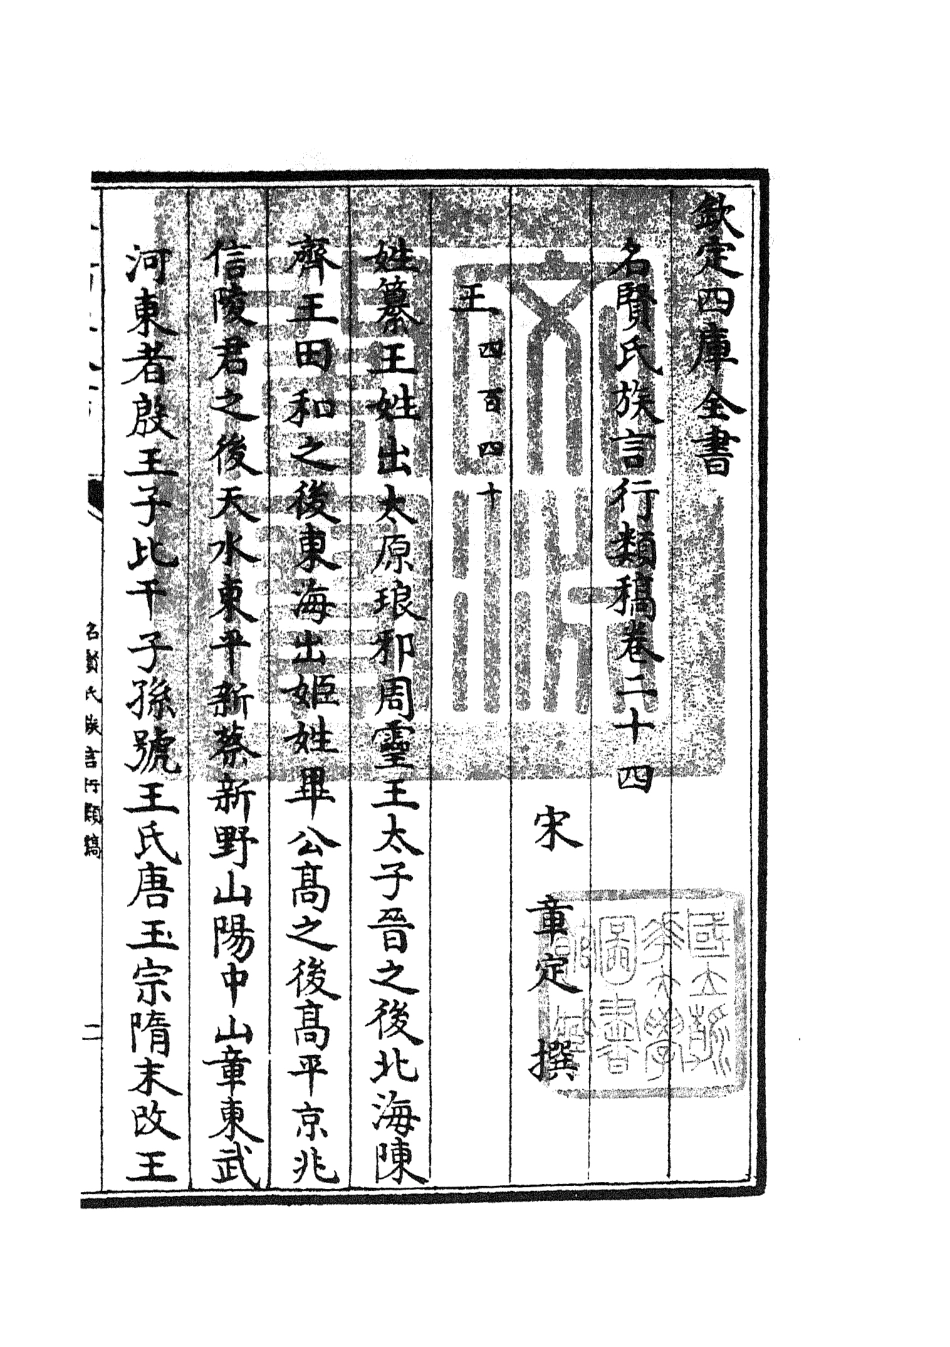 欽定四庫全書
名賢氏族言行類稿卷二十四
宋 章定 撰
王 四百四十
姓纂王姓出太原琅邪周靈王太子晉之後北海陳
齊王田和之後東海出姬姓畢公高之後高平京兆
信陵君之後天水東平新蔡新野山陽中山章東武
河東者殷王子比干子孫號王氏唐玉宗隋末改王
名賢氏族言行類稿
二